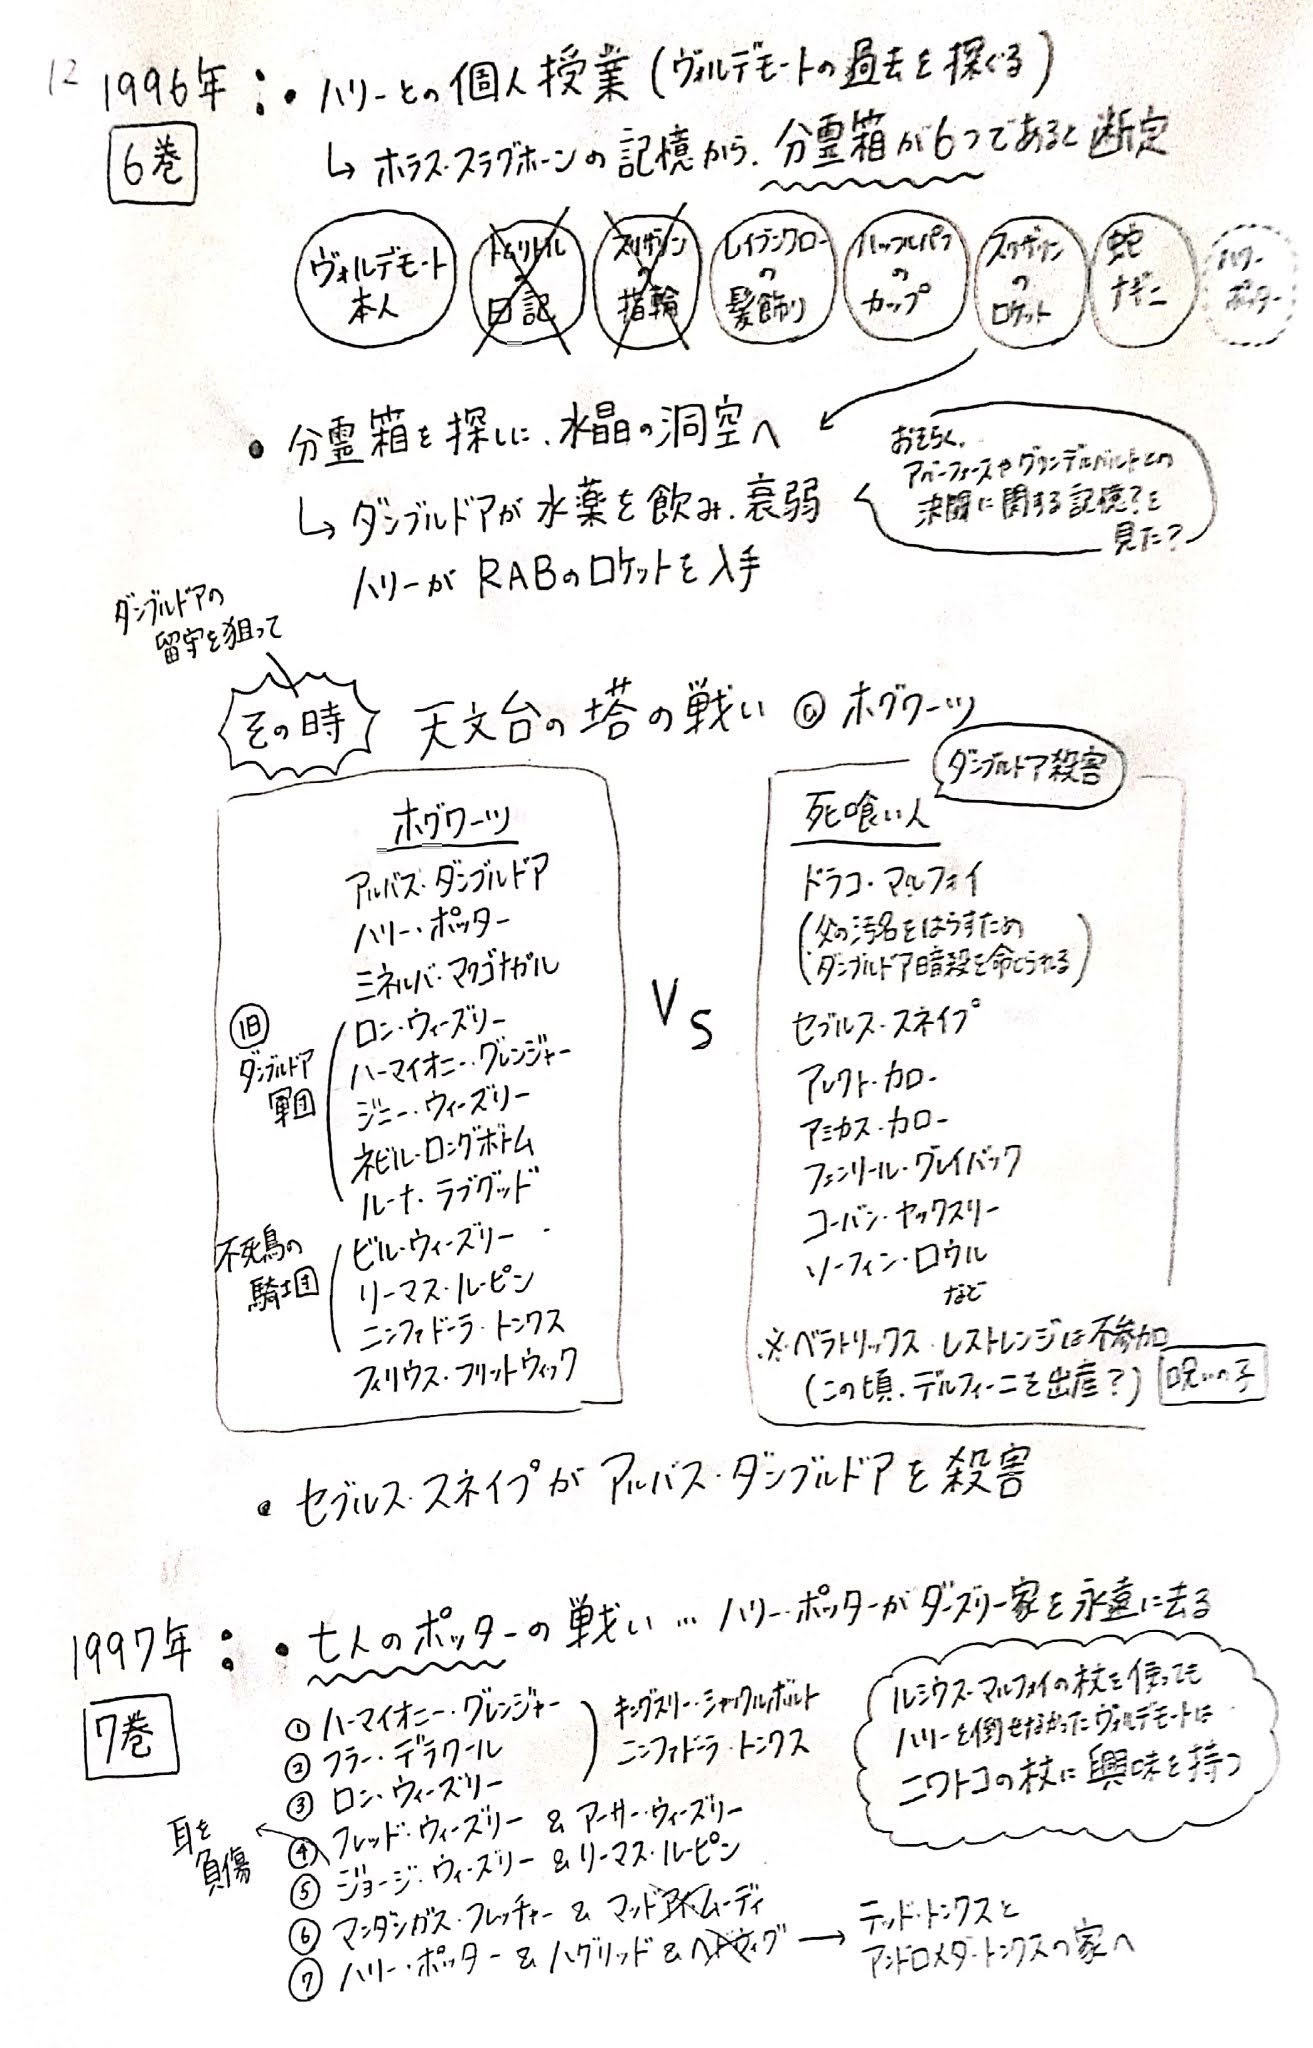 12
1996年：・ハリーとの個人授業（ヴォルデモートの過去を探ぐる）
6巻
↳ ホラス・スラグホーンの記憶から、分霊箱が6つであると断定
ヴォルデモート
本人
トム・リドル
の
日記
スリザリン
の
指輪
レイブンクロー
の
髪飾り
ハッフルパフ
の
カップ
スリザリン
の
ロケット
蛇
ナギニ
ハリー
ポッター
・分霊箱を探しに、水晶の洞空へ
↳ ダンブルドアが水薬を飲み、衰弱
ハリーがRABのロケットを入手
おそらく、
アバーフォースやグリンデルバルトとの
決闘に関する記憶？を
見た？
ダンブルドアの
留守を狙って
その時
天文台の塔の戦い @ ホグワーツ
ホグワーツ
アルバス・ダンブルドア
ハリー・ポッター
ミネルバ・マクゴナガル
旧
ダンブルドア
軍団
ロン・ウィーズリー
ハーマイオニー・グレンジャー
ジニー・ウィーズリー
ネビル・ロングボトム
ルーナ・ラブグッド
不死鳥の
騎士団
ビル・ウィーズリー
リーマス・ルーピン
ニンファドーラ・トンクス
フィリウス・フリットウィック
VS
ダンブルドア殺害
死喰い人
ドラコ・マルフォイ
（父の汚名をはらすため
ダンブルドア暗殺を命じられる）
セブルス・スネイプ
アレクト・カロー
アミカス・カロー
フェンリール・グレイバック
コーバン・ヤックスリー
ソーフィン・ロウル
など
※ベラトリックス・レストレンジは不参加
（この頃、デルフィーニを出産？）
呪いの子
・セブルス・スネイプがアルバス・ダンブルドアを殺害
1997年：・七人のポッターの戦い…ハリー・ポッターがダーズリー家を永遠に去る
7巻
① ハーマイオニー・グレンジャー
② フラー・デラクール
③ ロン・ウィーズリー
キングスリー・シャックルボルト
ニンファドーラ・トンクス
④ フレッド・ウィーズリー & アーサー・ウィーズリー
⑤ ジョージ・ウィーズリー & リーマス・ルーピン
⑥ マンダンガス・フレッチャー & マッドアイ・ムーディ
⑦ ハリー・ポッター & ハグリッド & ヘドウィグ → テッド・トンクスと
アンドロメダ・トンクスの家へ
耳を
負傷
ルシウス・マルフォイの杖を使っても
ハリーを倒せなかったヴォルデモートは
ニワトコの杖に興味を持つ